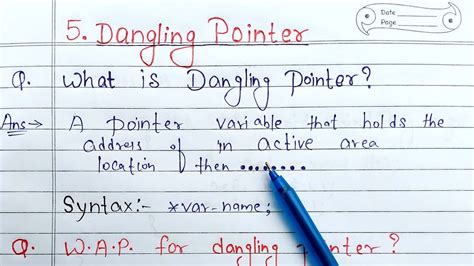 Date
Page
5. Dangling Pointer
Q. What is Dangling pointer?
Ans→ A pointer variable that holds the
address of in active area
location then ........
Syntax:- *var-name;
Q. W.A.P. for dangling pointer?